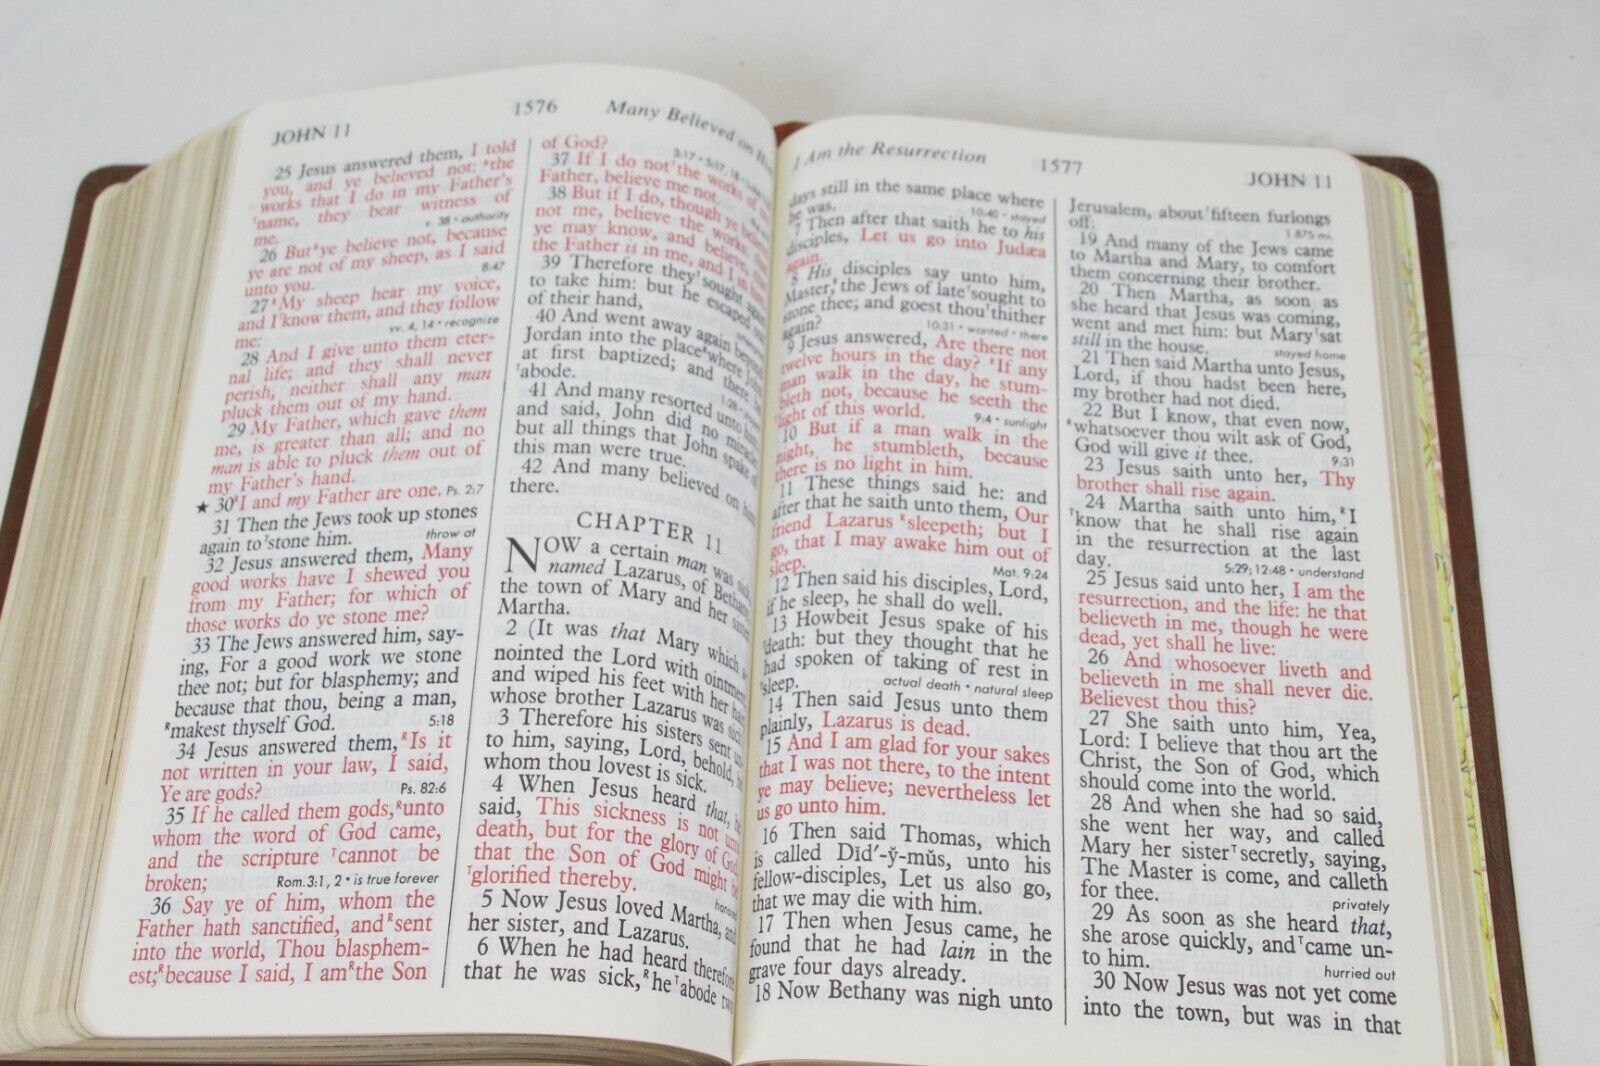 JOHN 11
1576
Many Believed on
25 Jesus answered them, I told
you, and ye believed not: ᴿthe
works that I do in my Father's
ᵀname, they bear witness of
me.
v. 38 • authority
26 But ᴿye believe not, because
ye are not of my sheep, as I said
unto you.
8:47
27 ᴿMy sheep hear my voice,
and I ᵀknow them, and they follow
me:
vv. 4, 14 • recognize
28 And I give unto them eter-
nal life; and they shall never
perish, neither shall any man
pluck them out of my hand.
29 My Father, which gave them
me, is greater than all; and no
man is able to pluck them out of
my Father's hand.
★ 30 ᴿI and my Father are one. Ps. 2:7
31 Then the Jews took up stones
again to ᵀstone him.
throw at
32 Jesus answered them, Many
good works have I shewed you
from my Father; for which of
those works do ye stone me?
33 The Jews answered him, say-
ing, For a good work we stone
thee not; but for blasphemy; and
because that thou, being a man,
ᴿmakest thyself God.
5:18
34 Jesus answered them, ᴿIs it
not written in your law, I said,
Ye are gods?
Ps. 82:6
35 If he called them gods, ᴿunto
whom the word of God came,
and the scripture ᵀcannot be
broken;
Rom. 3:1, 2 • is true forever
36 Say ye of him, whom the
Father hath sanctified, and ᴿsent
into the world, Thou blasphem-
est; ᴿbecause I said, I am ᴿthe Son
of God?
3:17 • 5:17, 18
37 If I do not the works of
Father, believe me not.
38 But if I do, though ye believe
not me, believe the works: that
ye may know, and believe, that
the Father is in me, and I in him.
39 Therefore they ᵀsought again
to take him: but he escaped out
of their hand,
40 And went away again beyond
Jordan into the place ᴿwhere John
at first baptized; and there he
ᵀabode.
1:28
41 And many resorted unto him,
and said, John did no miracle:
but all things that John spake of
this man were true.
42 And many believed on him
there.
CHAPTER 11
NOW a certain man was sick,
named Lazarus, of Bethany,
the town of Mary and her sister
Martha.
2 (It was that Mary which a-
nointed the Lord with ointment,
and wiped his feet with her hair,
whose brother Lazarus was sick.
3 Therefore his sisters sent un-
to him, saying, Lord, behold, he
whom thou lovest is sick.
4 When Jesus heard that, he
said, This sickness is not unto
death, but for the glory of God,
that the Son of God might be
ᵀglorified thereby.
honored
5 Now Jesus loved Martha, and
her sister, and Lazarus.
6 When he had heard therefore
that he was sick, ᴿhe ᵀabode two
I Am the Resurrection
1577
JOHN 11
days still in the same place where
he was.
10:40 • stayed
7 Then after that saith he to his
disciples, Let us go into Judæa
again.
8 His disciples say unto him,
Master, ᴿthe Jews of late ᵀsought to
stone thee; and goest thou ᵀthither
again?
10:31 • wanted • there
9 Jesus answered, Are there not
twelve hours in the day? ᴿIf any
man walk in the day, he stum-
bleth not, because he seeth the
ᵀlight of this world.
9:4 • sunlight
10 But if a man walk in the
night, he stumbleth, because
there is no light in him.
11 These things said he: and
after that he saith unto them, Our
friend Lazarus ᴿsleepeth; but I
go, that I may awake him out of
sleep.
Mat. 9:24
12 Then said his disciples, Lord,
if he sleep, he shall do well.
13 Howbeit Jesus spake of his
ᵀdeath: but they thought that he
had spoken of taking of rest in
ᵀsleep.
actual death • natural sleep
14 Then said Jesus unto them
plainly, Lazarus is dead.
15 And I am glad for your sakes
that I was not there, to the intent
ye may believe; nevertheless let
us go unto him.
16 Then said Thomas, which
is called Dĭd′-y̆-mŭs, unto his
fellow-disciples, Let us also go,
that we may die with him.
17 Then when Jesus came, he
found that he had lain in the
grave four days already.
18 Now Bethany was nigh unto
Jerusalem, about ᵀfifteen furlongs
off:
1.875 mi.
19 And many of the Jews came
to Martha and Mary, to comfort
them concerning their brother.
20 Then Martha, as soon as
she heard that Jesus was coming,
went and met him: but Mary ᵀsat
still in the house.
stayed home
21 Then said Martha unto Jesus,
Lord, if thou hadst been here,
my brother had not died.
22 But I know, that even now,
ᴿwhatsoever thou wilt ask of God,
God will give it thee.
9:31
23 Jesus saith unto her, Thy
brother shall rise again.
24 Martha saith unto him, ᴿI
ᵀknow that he shall rise again
in the resurrection at the last
day.
5:29; 12:48 • understand
25 Jesus said unto her, I am the
resurrection, and the life: he that
believeth in me, though he were
dead, yet shall he live:
26 And whosoever liveth and
believeth in me shall never die.
Believest thou this?
27 She saith unto him, Yea,
Lord: I believe that thou art the
Christ, the Son of God, which
should come into the world.
28 And when she had so said,
she went her way, and called
Mary her sister ᵀsecretly, saying,
The Master is come, and calleth
for thee.
privately
29 As soon as she heard that,
she arose quickly, and ᵀcame un-
to him.
hurried out
30 Now Jesus was not yet come
into the town, but was in that